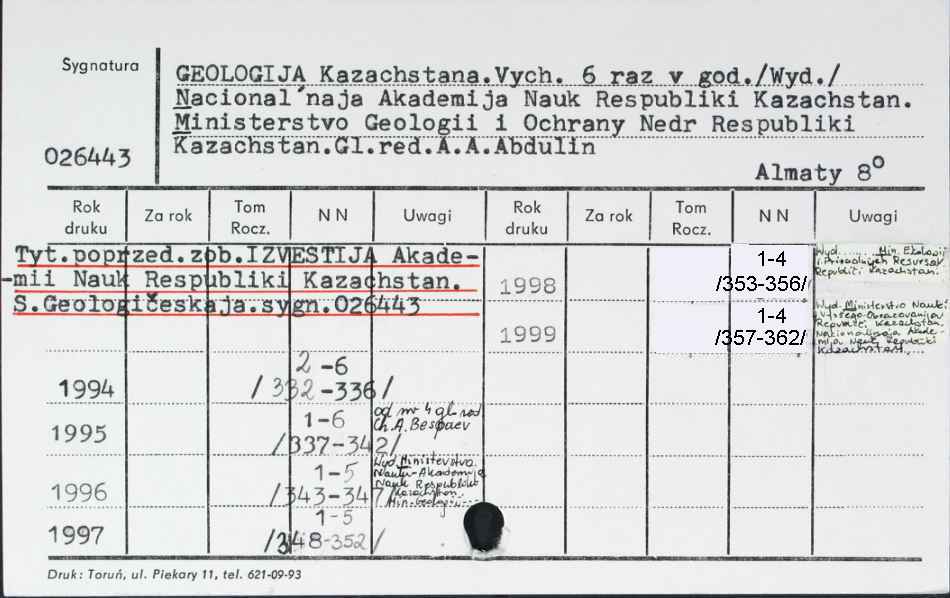 Sygnatura
GEOLOGIJA Kazachstana.Vych. 6 raz v god./Wyd./
Nacional´naja Akademija Nauk Respubliki Kazachstan.
Ministerstvo Geologii i Ochrany Nedr Respubliki
Kazachstan.Gl.red.A.A.Abdulin
026443
Almaty 8º
Rok druku Za rok Tom Rocz. N N Uwagi Rok druku Za rok Tom Rocz. N N Uwagi
Tyt.poprzed.zob.IZVESTIJA Akade-
-mii Nauk Respubliki Kazachstan.
S.Geologičeskaja.sygn.026443
1998 1-4
/353-356/
Wyd. Min. Ekologii
i Prirodnych Resursov
Republiki Kazachstan.
1999 1-4
/357-362/
Wyd. Ministerstvo Nauki
Kazachstan.
1994 2-6
/332-336/
1995 1-6
/337-342/
od nr 4 gl. red.
Ch.A.Bespaev
1996 1-5
/343-347/
Wyd. Ministerstvo
Nauki-Akademija
Nauk Respubliki
Kazachstan.
1997 1-5
/348-352/
Druk: Toruń, ul. Piekary 11, tel. 621-09-93